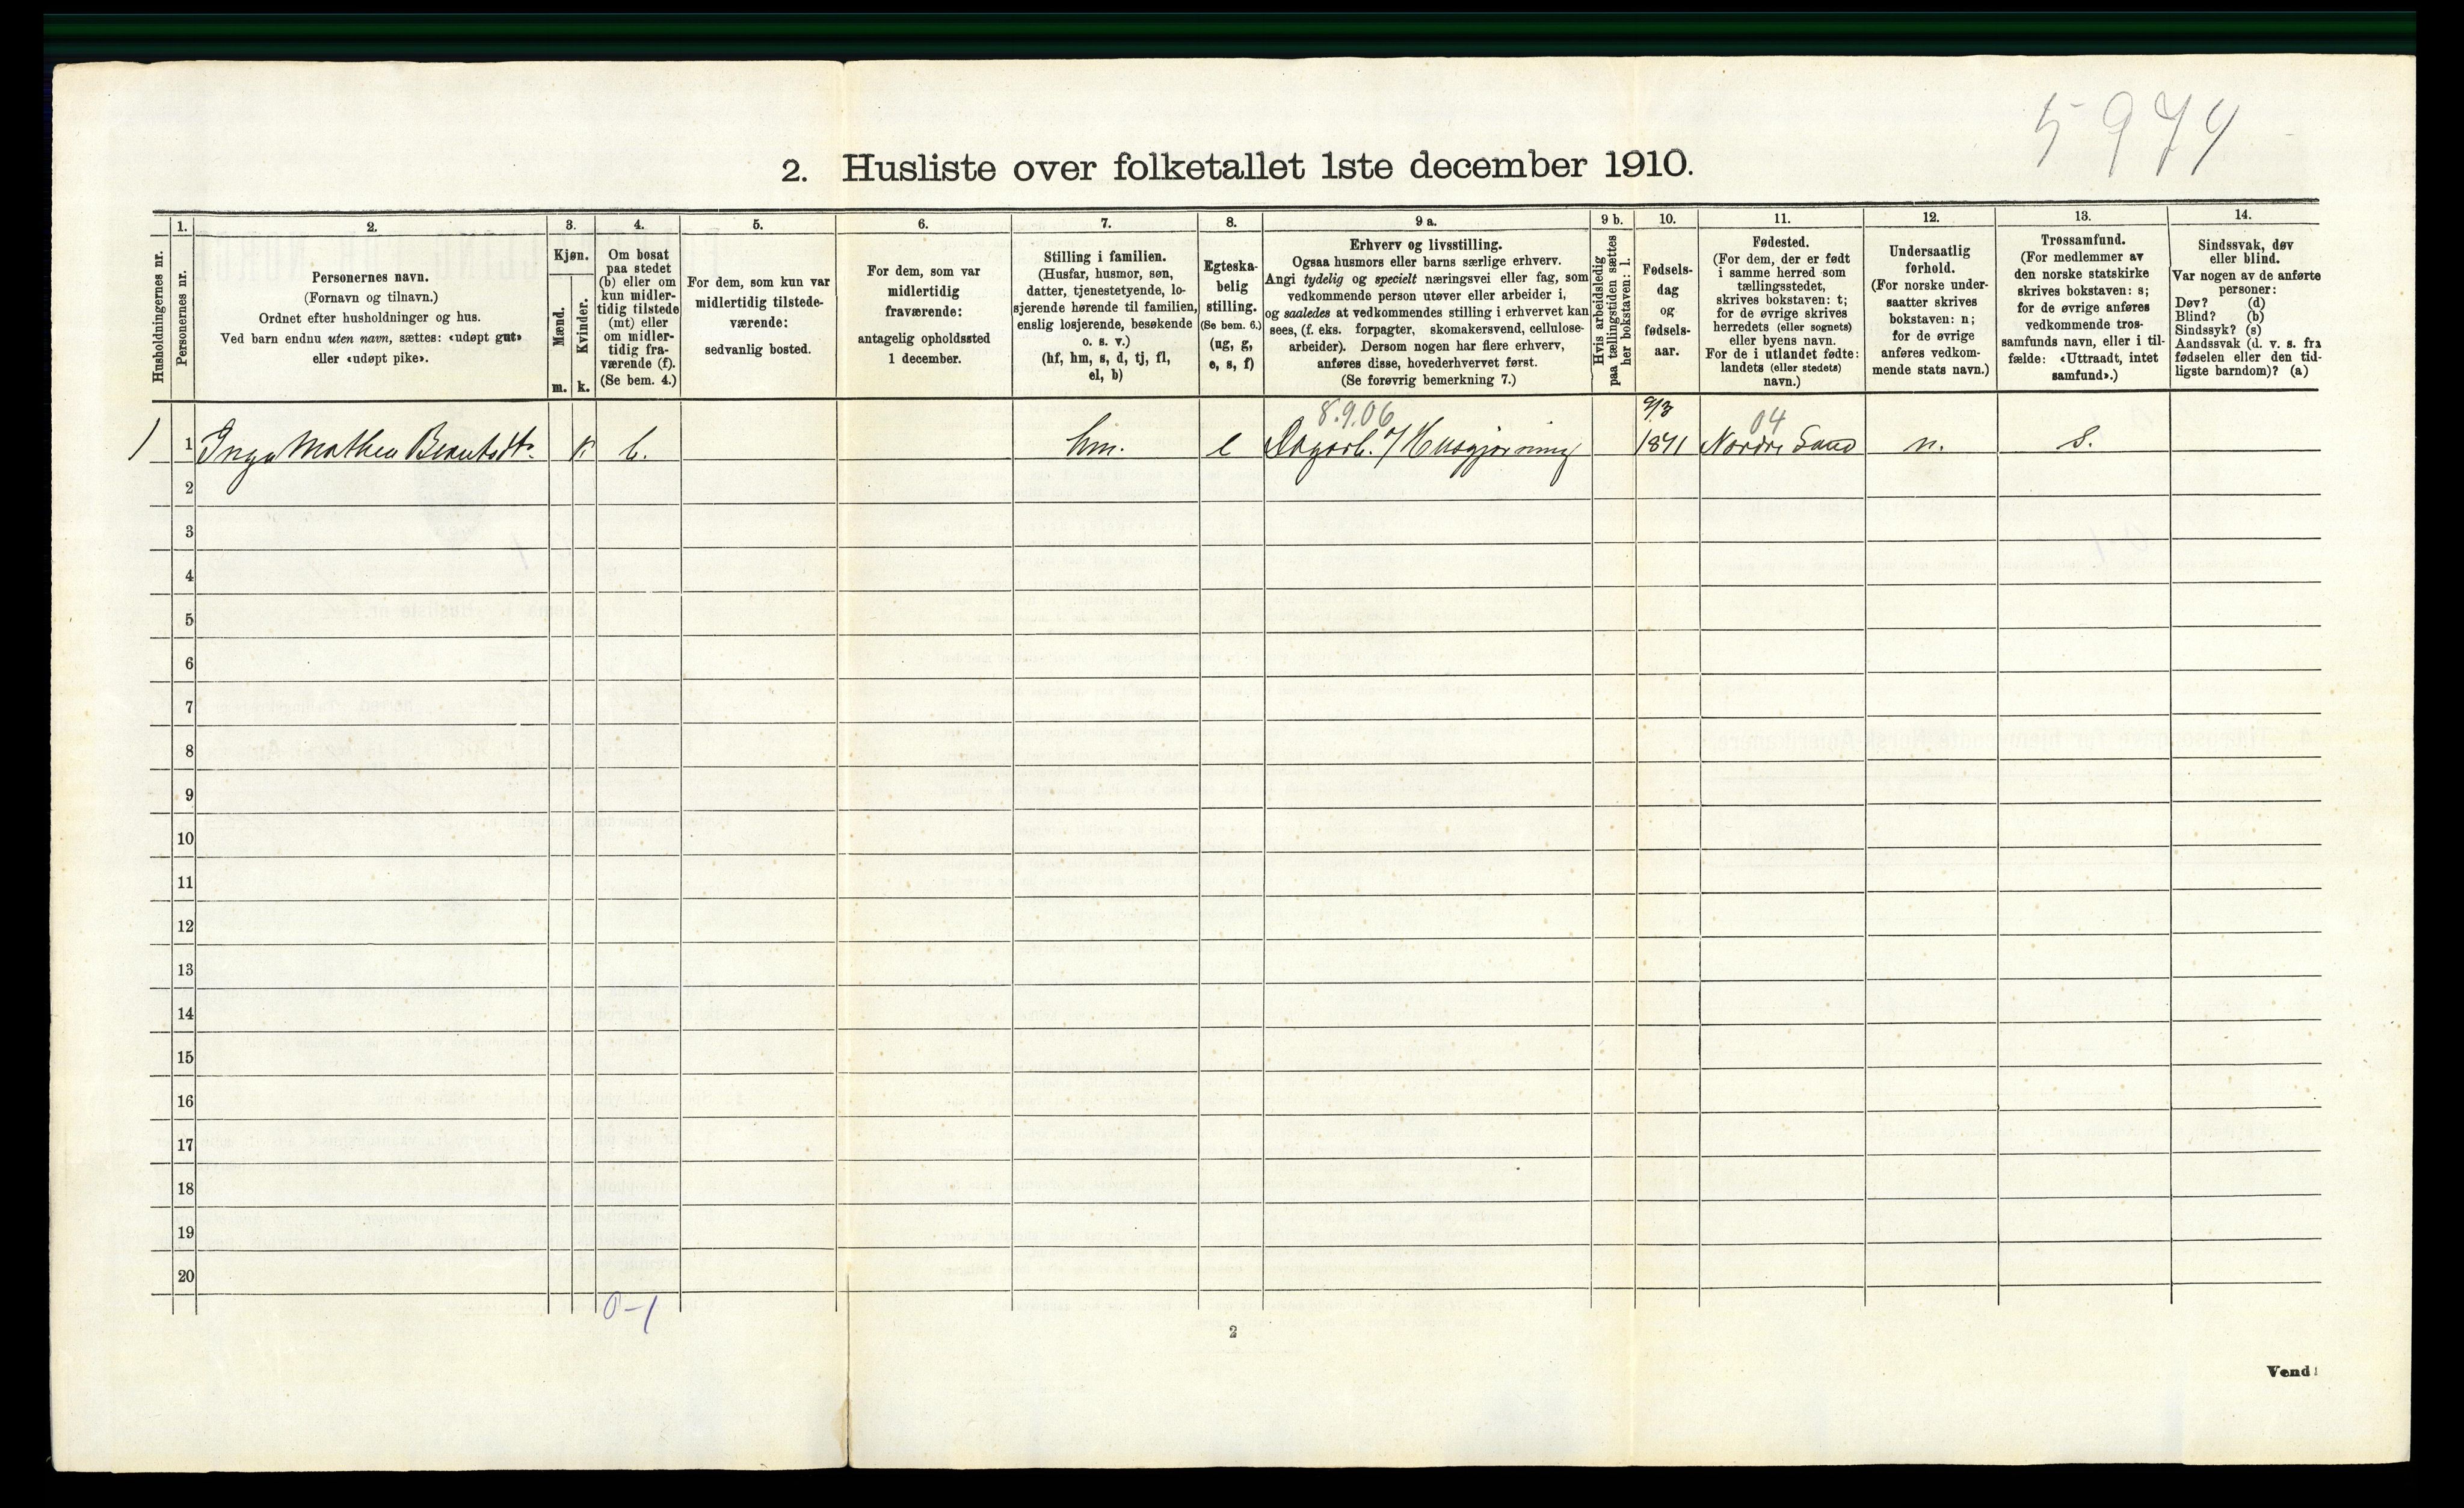 5974
2. Husliste over folketallet 1ste december 1910.
Husholdningernes nr.
1.
Personernes nr.
2.
Personernes navn.
(Fornavn og tilnavn.)
Ordnet efter husholdninger og hus.
Ved barn endnu uten navn, sættes: «udøpt gut»
eller «udøpt pike».
3.
Kjøn.
Mænd.
m.
Kvinder.
k.
4.
Om bosat
paa stedet
(b) eller om
kun midler-
tidig tilstede
(mt) eller
om midler-
tidig fra-
værende (f).
(Se bem. 4.)
5.
For dem, som kun var
midlertidig tilstede-
værende:
sedvanlig bosted.
6.
For dem, som var
midlertidig
fraværende:
antagelig opholdssted
1 december.
7.
Stilling i familien.
(Husfar, husmor, søn,
datter, tjenestetyende, lo-
sjerende hørende til familien,
enslig losjerende, besøkende
o. s. v.)
(hf, hm, s, d, tj, fl,
el, b)
8.
Egteska-
belig
stilling.
(Se bem. 6.)
(ug, g,
e, s, f)
9 a.
Erhverv og livsstilling.
Ogsaa husmors eller barns særlige erhverv.
Angi tydelig og specielt næringsvei eller fag, som
vedkommende person utøver eller arbeider i,
og saaledes at vedkommendes stilling i erhvervet kan
sees, (f. eks. forpagter, skomakersvend, cellulose-
arbeider). Dersom nogen har flere erhverv,
anføres disse, hovederhvervet først.
(Se forøvrig bemerkning 7.)
9 b.
Hvis arbeidsledig
paa tællingstiden sættes
her bokstaven: l.
10.
Fødsels-
dag
og
fødsels-
aar.
11.
Fødested.
(For dem, der er født
i samme herred som
tællingsstedet,
skrives bokstaven: t;
for de øvrige skrives
herredets (eller sognets)
eller byens navn.
For de i utlandet fødte:
landets (eller stedets)
navn.)
12.
Undersaatlig
forhold.
(For norske under-
saatter skrives
bokstaven: n;
for de øvrige
anføres vedkom-
mende stats navn.)
13.
Trossamfund.
(For medlemmer av
den norske statskirke
skrives bokstaven: s;
for de øvrige anføres
vedkommende tros-
samfunds navn, eller i til-
fælde: «Uttraadt, intet
samfund».)
14.
Sindssvak, døv
eller blind.
Var nogen av de anførte
personer:
Døv? (d)
Blind? (b)
Sindssyk? (s)
Aandssvak (d. v. s. fra
fødselen eller den tid-
ligste barndom)? (a)
8.9.06 9/3 04
1 1 Inga Mathea k b. hm. e Dagarb. v/ Husgjørning 1871 Nordre Land n. s.
2
3
4
5
6
7
8
9
10
11
12
13
14
15
16
17
18
19
20
0-1
2
Vend!